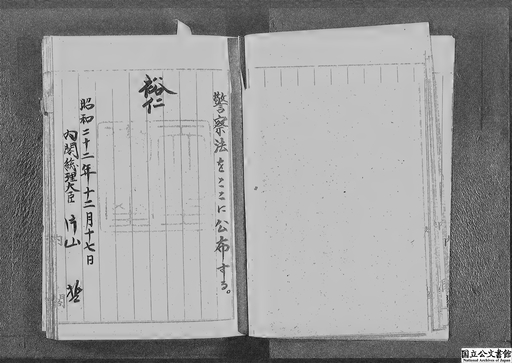 警察法をここに公布する。
裕仁
昭和二十二年十二月十七日
内閣総理大臣 片山 哲
内閣
国立公文書館
National Archives of Japan